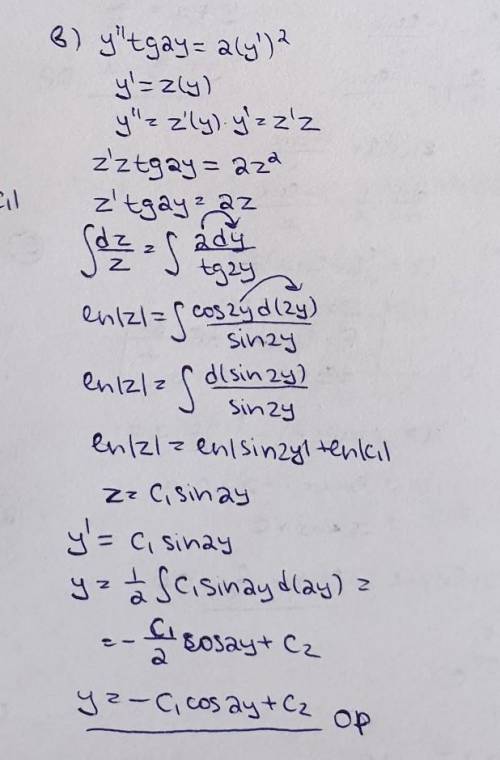 в) y'' tg2y = 2(y')²
y' = z(y)
y'' = z'(y)·y' = z'z
z'z tg2y = 2z²
c₁|
z' tg2y = 2z
∫ dz/z = ∫ 2dy/tg2y
ln|z| = ∫ cos2y d(2y)/sin2y
ln|z| = ∫ d(sin2y)/sin2y
ln|z| = ln|sin2y| + ln|c₁|
z = c₁ sin2y
y' = c₁ sin2y
y = 1/2 ∫ c₁ sin2y d(2y) =
= - c₁/2 cos2y + c₂
y = - c₁ cos2y + c₂ ОР